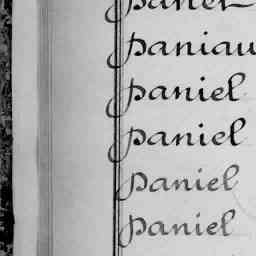 Daniel
Daniau
Daniel
Daniel
Daniel
Daniel